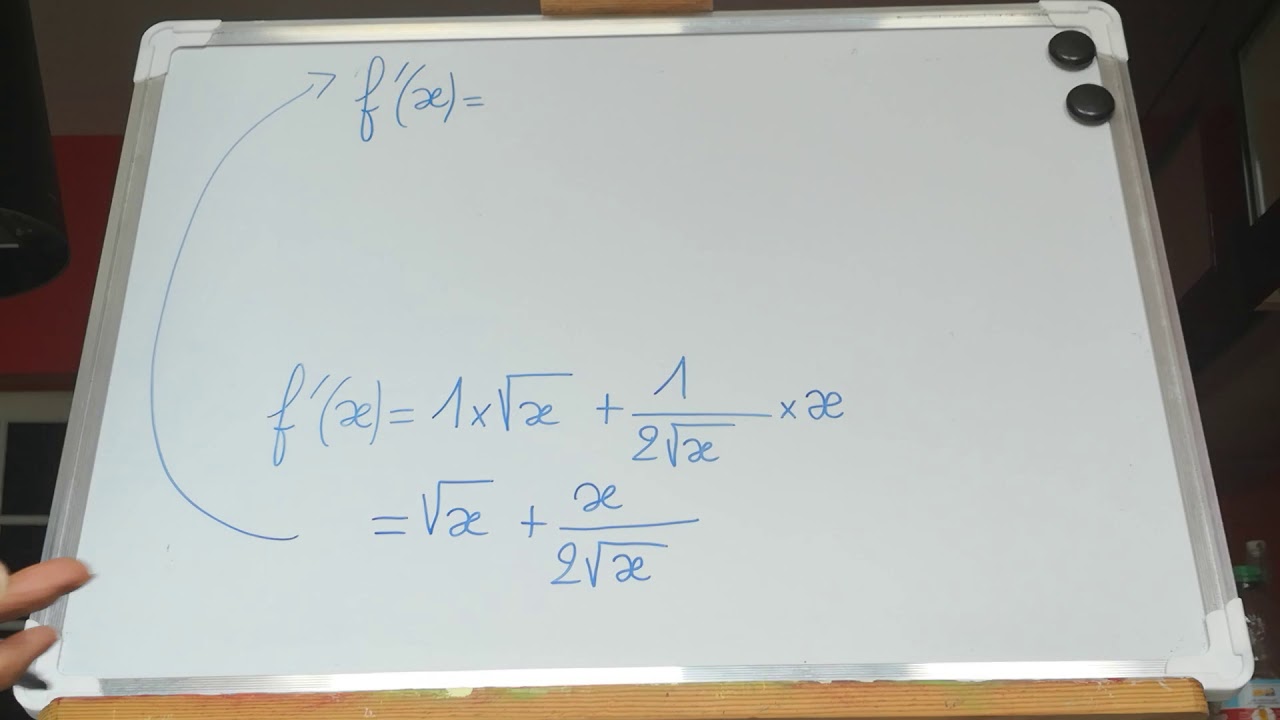 f'(x)=
f'(x)= 1×√x + 1/(2√x) × x
= √x + x/(2√x)